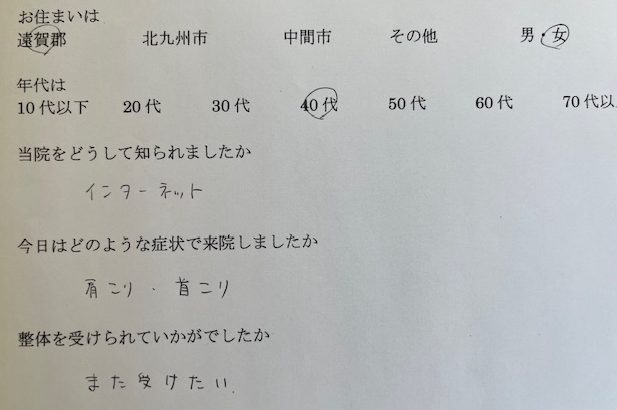 お住まいは
遠賀郡 北九州市 中間市 その他 男・女
年代は
10代以下 20代 30代 40代 50代 60代 70代以
当院をどうして知られましたか
インターネット
今日はどのような症状で来院しましたか
肩こり・首こり
整体を受けられていかがでしたか
また受けたい.